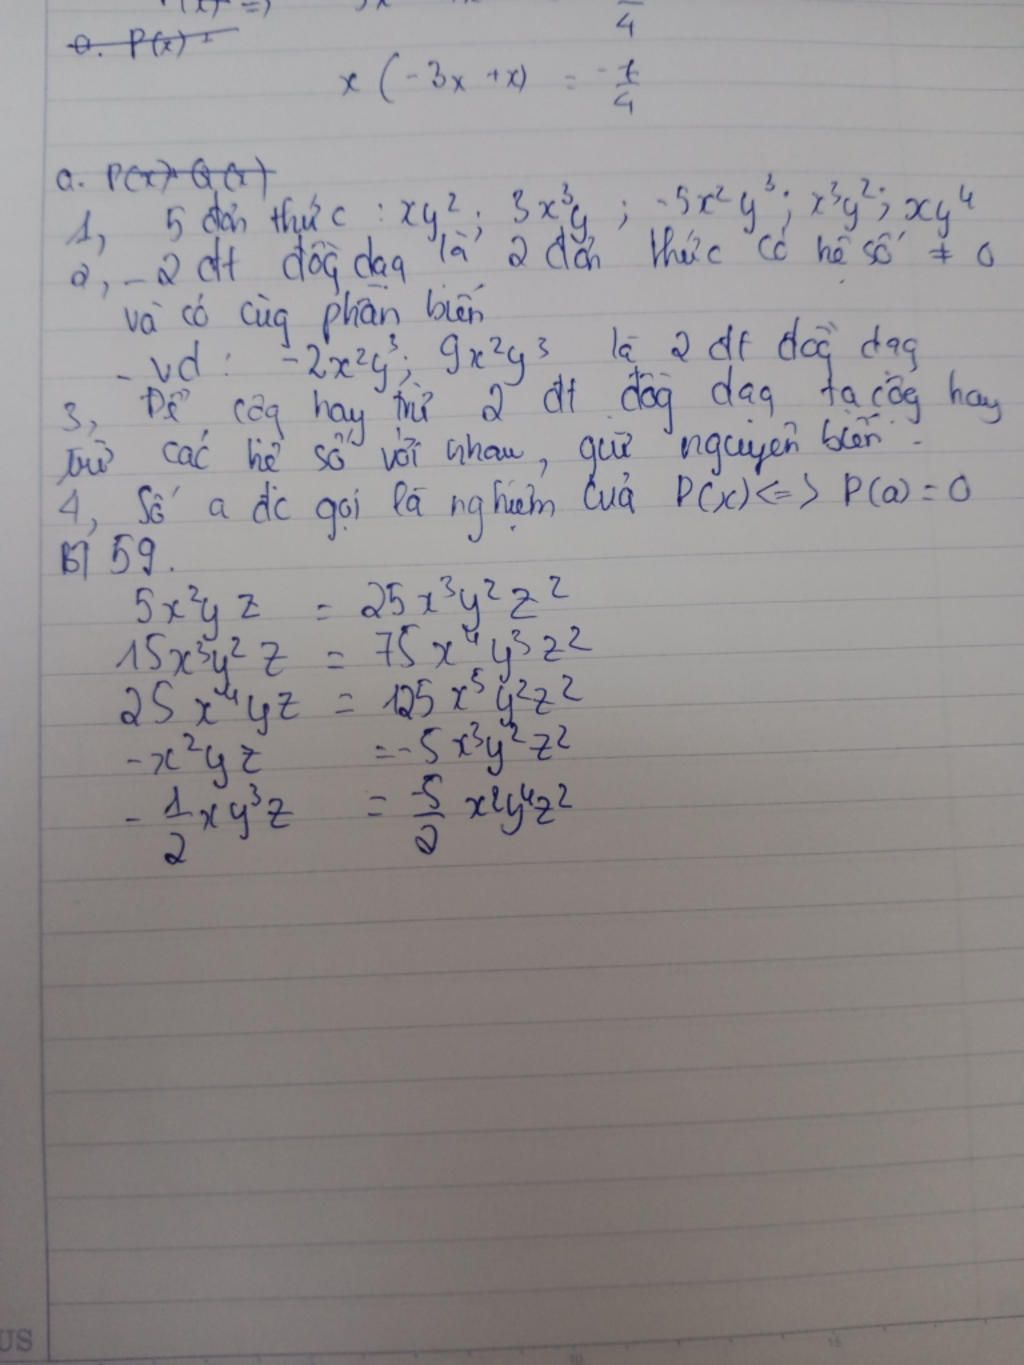 a. P(x) =
4
x (-3x + x) = -1/4
a. P(x) + Q(x)
1, 5 đơn thức : xy²; 3x³y ; -5x²y³; x³y²; xy⁴
2, - 2 đt đồg dạg là 2 đơn thức có hệ số ≠ 0
và có cùg phần biến
- vd : -2x²y³; 9x²y³ là 2 đt đồg dạg
3, Để cộg hay trừ 2 đt đồg dạg ta cộg hay
trừ các hệ số với nhau, giữ nguyên biến.
4, Số a đc gọi là nghiệm của P(x) <=> P(a) = 0
BT 59.
5x²yz = 25x³y²z²
15x³y²z = 75x⁴y³z²
25x⁴yz = 125x⁵y²z²
-x²yz = -5x³y²z²
-1/2 xy³z = -5/2 x²y⁴z²
US